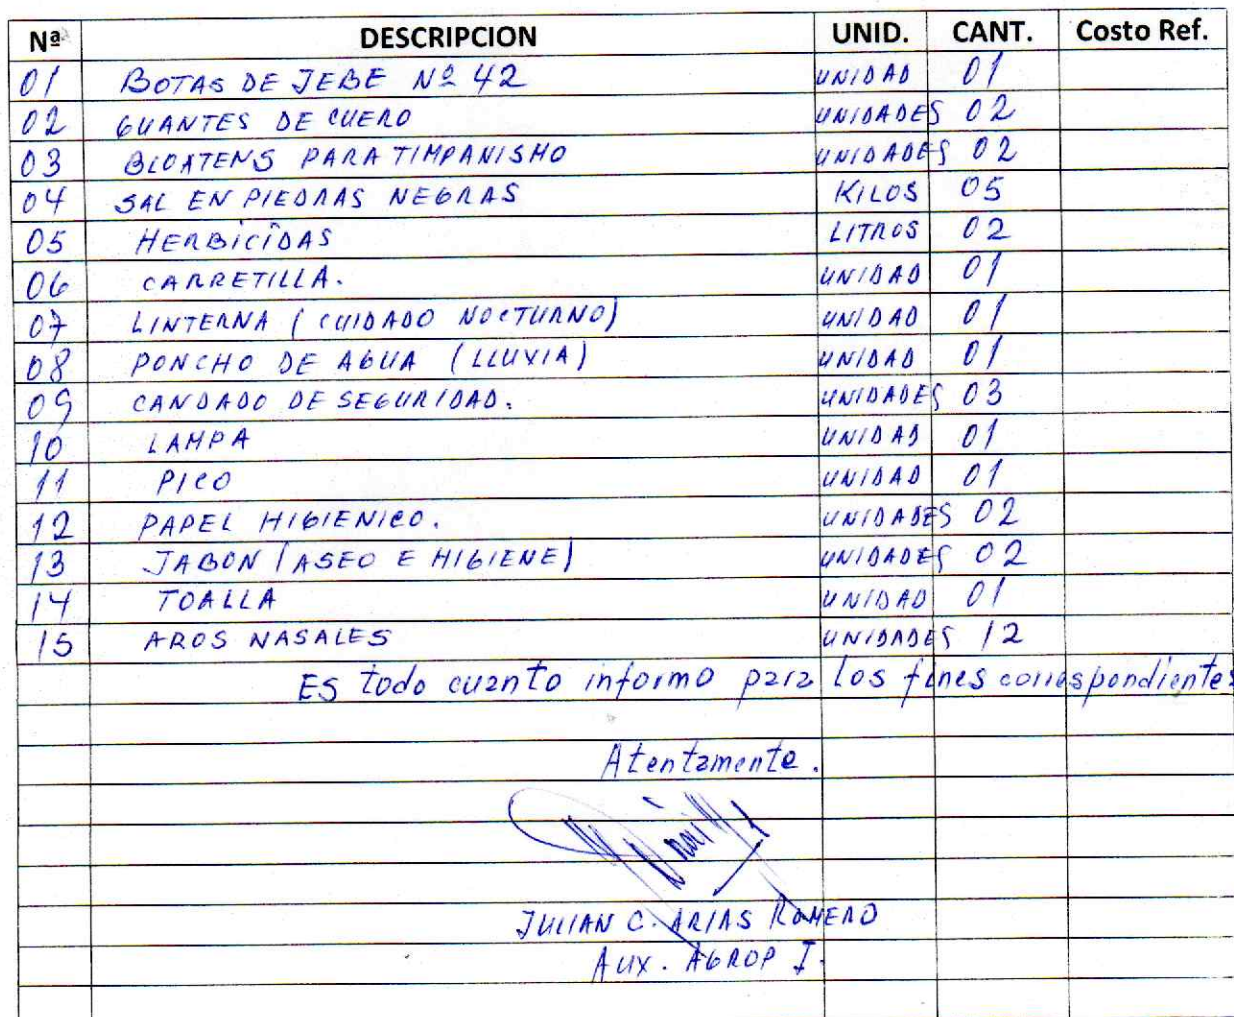 Nª DESCRIPCION UNID. CANT. Costo Ref.
01 BOTAS DE JEBE Nº 42 UNIDAD 01
02 GUANTES DE CUERO UNIDADES 02
03 BLOATENS PARA TIMPANISMO UNIDADES 02
04 SAL EN PIEDRAS NEGRAS KILOS 05
05 HERBICIDAS LITROS 02
06 CARRETILLA. UNIDAD 01
07 LINTERNA (CUIDADO NOCTURNO) UNIDAD 01
08 PONCHO DE AGUA (LLUVIA) UNIDAD 01
09 CANDADO DE SEGURIDAD. UNIDADES 03
10 LAMPA UNIDAD 01
11 PICO UNIDAD 01
12 PAPEL HIGIENICO. UNIDADES 02
13 JABON (ASEO E HIGIENE) UNIDADES 02
14 TOALLA UNIDAD 01
15 AROS NASALES UNIDADES 12
Es todo cuanto informo para los fines correspondientes
Atentamente.
JULIAN C. ARIAS ROMERO
AUX. AGROP I.